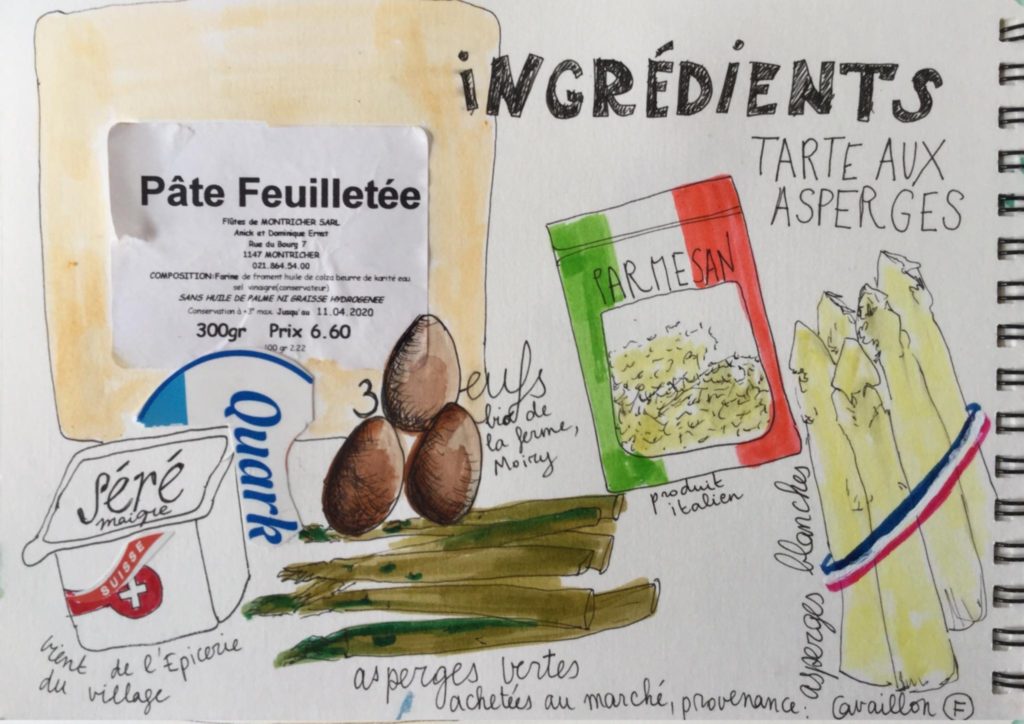 iNGRÉDIENTS
TARTE AUX
ASPERGES
Pâte Feuilletée
Flûtes de MONTRICHER SARL
Anick et Dominique Ernst
Rue du Bourg 7
1147 MONTRICHER
021.864.54.00
COMPOSITION:Farine de froment huile de colza beurre de karité eau
sel vinaigre(conservateur)
SANS HUILE DE PALME NI GRAISSE HYDROGENEE
Conservation à +3° max. Jusqu'au 11.04.2020
300gr Prix 6.60
100 gr 2.22
PARMESAN
produit
italien
3 oeufs
bio de
la ferme,
Moiry
Quark
Séré
maigre
SUISSE
vient de l'Epicerie
du village
asperges vertes
achetées au marché, provenance: Cavaillon F
asperges blanches